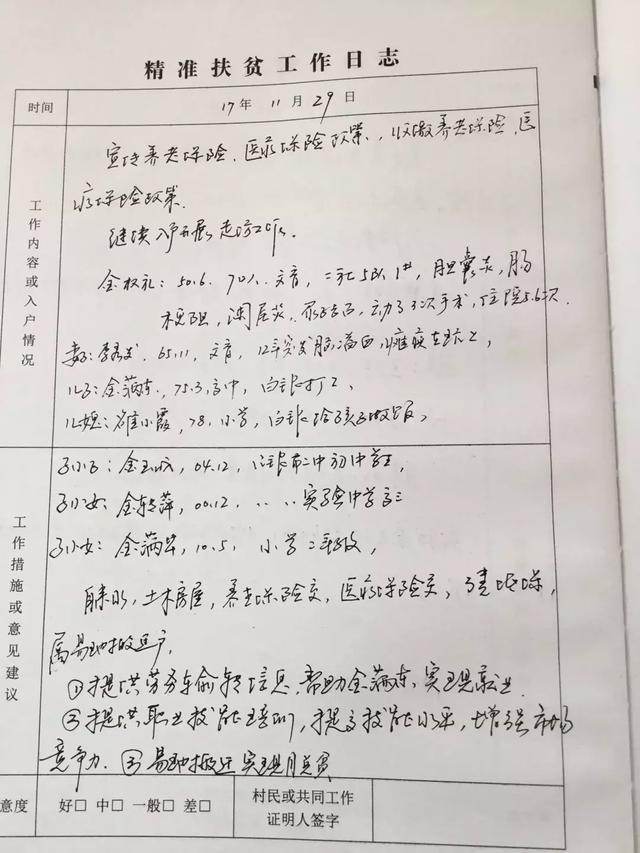 精准扶贫工作日志
时间 17年 11月 29日
工作内容或入户情况
宣传养老保险、医疗保险政策,收缴养老保险、医
疗保险政策.
继续入户开展走访工作.
金权礼:50.6. 70%. 文盲,二 5 1 胆囊炎,肠
梗阻,阑尾炎、动了3次手术,住院5.6次.
妻子:李 65.11,文盲,12年突发脑溢血,瘫痪
儿子:金满东,75.3,高中,白银打工,
儿媳:崔小霞,78. 小学,白银给孩子做饭,
工作措施或意见建议
孙子:金玉 04.12,白银市二中初中学生,
孙女:金转萍,00.12, 〃 〃 实验中学高三
孙女:金满 10.5, 小学二年级,
自来水,土木房屋,养老保险交,医疗保险交,
属易地搬迁户,
①提供劳务输转信息,帮助金满东,实现就业.
②提供职业技能培训,提高技能水平,增强市场
竞争力.③易地搬迁实现脱贫
意度 好□ 中□ 一般□ 差□
村民或共同工作
证明人签字